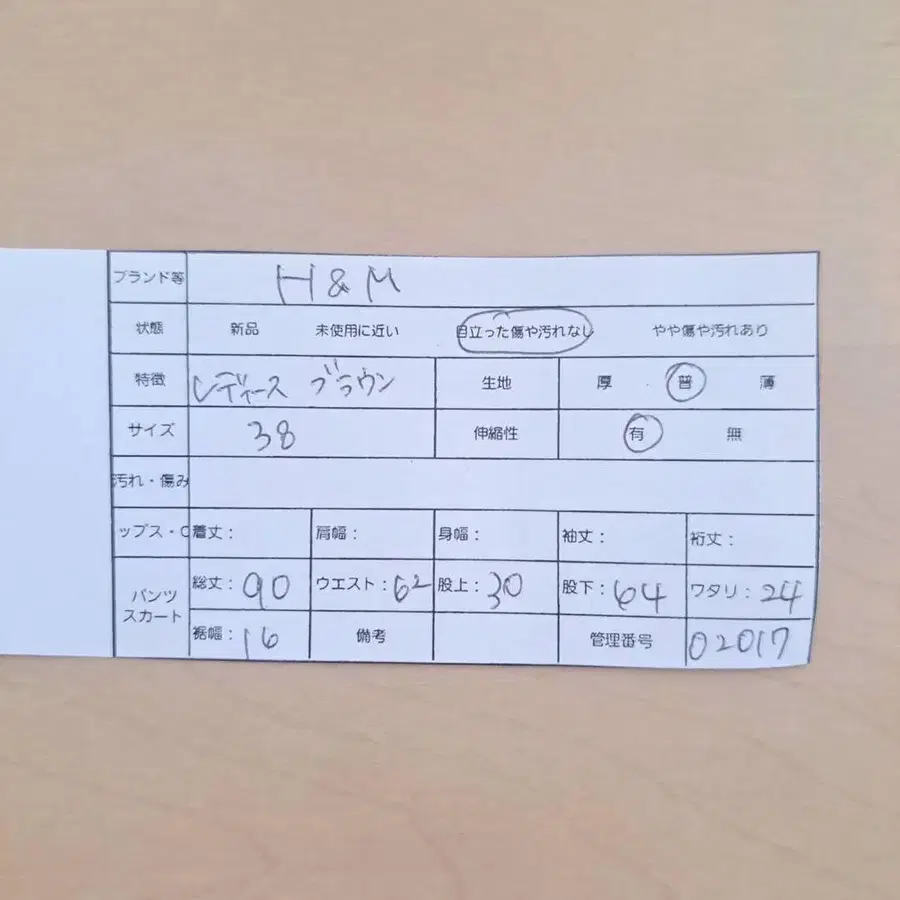 ブランド等 H&M
状態 新品 未使用に近い 目立った傷や汚れなし やや傷や汚れあり
特徴 レディース ブラウン 生地 厚 普 薄
サイズ 38 伸縮性 有 無
汚れ・傷み
ップス・C 着丈: 肩幅: 身幅: 袖丈: 裄丈:
パンツ
スカート
総丈:90 ウエスト:62 股上:30 股下:64 ワタリ:24
裾幅:16 備考 管理番号 02017